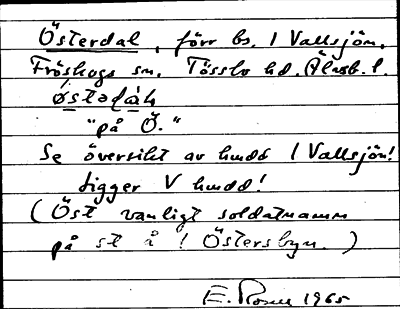 Österdal, förr bs. i Vallsjön,
Fröskogs sn. Tössbo hd. Älvsb. l.
östəḍàḷ
"på Ö."
Se översikt av hmdd i Vallsjön!
Ligger V hmdd!
(Öst vanligt soldatnamn
på st å i Östersbyn.)
E. Rosen 1965